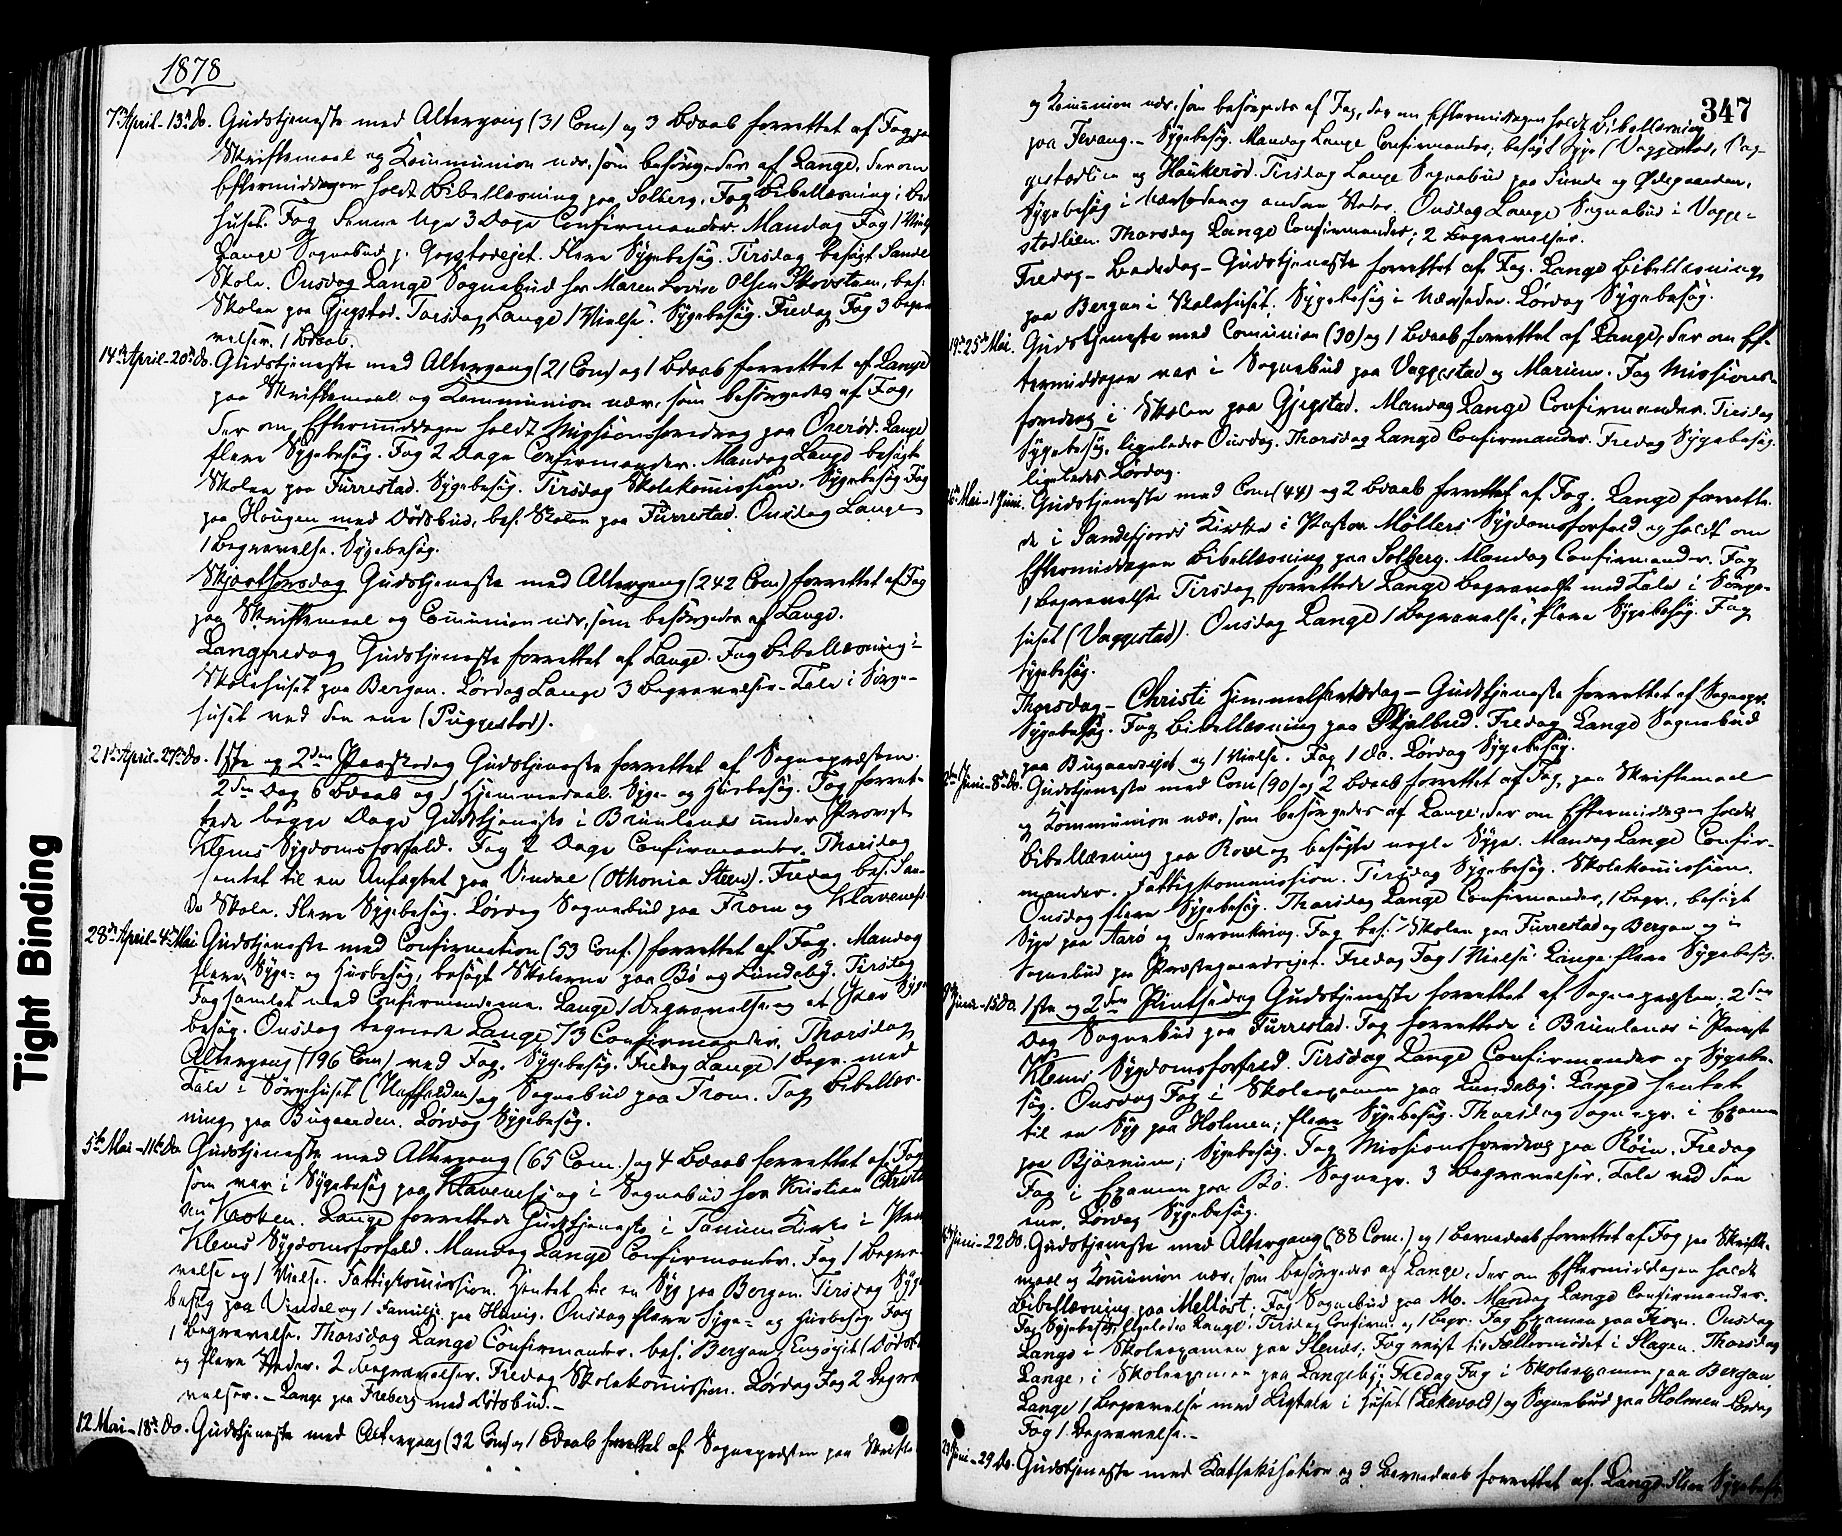 1878
7de April - 13de Do. Gudstjeneste med Altergang (31 Com) og 3 Bdaab forrettet af Fog, paa
Skriftemaal og Kommunion nær, som besörgedes af Lange, der om
Eftermiddagen holdt Bibellæsning paa Solberg, Fog Bibellæsning i Bed-
huset. Fog denne Uge 3 Dage Confirmander. Mandag Fog 1 Vielse
Lange Sognebud p. Gogstadejet. Flere Sygebesög. Tirsdag besögt Sande
Skole. Onsdag Lange Sognebud hos Maren Lovise Olsen Skovstuen, bes.
Skolen paa Gjegstad. Torsdag Lange 1 Vielse. Sygebesög. Fredag Fog 3 Begra-
velser. 1 Bdaab.
14de April - 20de Do. Gudstjeneste med Altergang (21 Com) og 1 Bdaab forrettet af Lange
paa Skriftemaal og Kommunion nær, som besörgedes af Fog,
der om Eftermiddagen holdt Missionsforedrag paa Onerød. Lange
flere Sygebesög. Fog 2 Dage Confirmander. Mandag Lange besögte
Skolen paa Furrestad. Sygebesög. Tirsdag Skolekommission. Sygebesög Fog
paa Haugen med Dödsbud, bes. Skolen paa Furrestad. Onsdag Lange
1 Begravelse. Sygebesög.
Skjærthorsdag Gudstjeneste med Altergang (242 Com) forrettet af Fog
paa Skriftemaal og Communion nær, som besörgedes af Lange.
Langfredag Gudstjeneste forrettet af Lange. Fog Bibellæsning i
Skolehuset paa Bergan. Lördag Lange 3 Begravelser. Tale i Sörge-
huset ved den ene (Puggestad).
21de April - 27de Do. 1ste og 2den Paaskedag Gudstjeneste forrettet af Sognepræsten.
2den Dag 6 Bdaab og 1 Hjemmedaab. Syge- og Husbesög. Fog forret-
tede begge Dage Gudstjeneste i Brunlanes under Provst
Klems Sygdomsforfald. Fog 2 Dage Confirmander. Thorsdag
hentet til en Anfægtet paa Vindal (Othonia Steen). Fredag bes. San-
de Skole. Flere Sygebesög. Lördag Sognebud paa Fram og Klavenes.
28de April - 4de Mai Gudstjeneste med Confirmation (53 Conf.) forrettet af Fog. Mandag
flere Syge- og Husbesög, besögt Skolerne paa Bö og Lundeby. Tirsdag
Fog samlet med Confirmanderne. Lange 1 Begravelse og et Par Syge-
besög. Onsdag begynte Lange 73 Confirmander. Thorsdag
Altergang (196 Com) ved Fog. Sygebesög. Fredag Lange 1 Begr. med
Tale i Sörgehuset (Haffelden) og Sognebud paa Fram. Fog Bibellæs-
ning paa Bugaarden. Lördag Sygebesög.
5te Mai - 11te Do. Gudstjeneste med Altergang (65 Com.) og 4 Bdaab forrettet af Fog
som var i Sygebesög paa Klavenes og i Sognebud hos Kristian Christi-
sen Kroken. Lange forrettede Gudstjeneste i Tanum Kirke i Provst
Klems Sygdomsforfald. Mandag Lange Confirmander. Fog 1 Begra-
velse og 1 Vielse. Fattigkommission. Hentet til en Syg paa Bergan. Tirsdag Syge-
besög paa Vindal og 1 Familje paa Havig. Onsdag flere Syge- og Husbesög. Fog
1 Begravelse. Thorsdag Lange Confirmander. bes. Bergan Engöejet (Dödsb.
og flere Steder. 2 Begravelser. Fredag Skolekommission. Lördag Fog 2 Begra-
velser. - Lange paa Freberg med Dödsbud. -
12 Mai - 18de Do. Gudstjeneste med Altergang (32 Com) og 1 Bdaab forrettet af Sognepræsten paa Skrifte-
347
og Kommunion nær, som besörgedes af Fog, der om Eftermiddagen holdt Bibellæsning
paa Fevang. - Sygebesög. Mandag Lange Confirmander, besögt Syge (Vaggestad, Vag-
gestadlien og Haukeröd. Tirsdag Lange Sognebud paa Sunde og Ødegaarden,
Sygebesög i Nærheden og andre Steder. Onsdag Lange Sognebud i Vagge-
stadlien. Thorsdag Lange Confirmander; 2 Begravelser.
Fredag - Bededag - Gudstjeneste forrettet af Fog. Lange Bibellæsning
paa Bergan i Skolehuset. Sygebesög i Nærheden. Lördag Sygebesög.
19de-25de Mai. Gudstjeneste med Communion (30) og 1 Bdaab forrettet af Lange, der om Ef-
termiddagen var i Sognebud paa Vaggestad og Marium. Fog Missions-
foredrag i Skolen paa Gjegstad. Mandag Lange Confirmander. Tirsdag
Sygebesög, ligeledes Onsdag. Thorsdag Lange Confirmander. Fredag Sygebesög.
ligeledes Lördag.
26de Mai-1 Juni. Gudstjeneste med Com (44) og 2 Bdaab forrettet af Fog. Lange forrette-
de i Sandefjords Kirke i Pastor Möllers Sygdomsforfald og holdt om
Eftermiddagen Bibellæsning paa Solberg. Mandag Confirmander. Fog
1 Begravelse. Tirsdag forrettede Lange Begravelse med Tale i Sörge-
huset (Vaggestad). Onsdag Lange 1 Begravelse, flere Sygebesög. Fog
Sygebesög.
Thorsdag - Christi Himmelfartsdag - Gudstjeneste forrettet af Sognepr.
Sygebesög. Fog Bibellæsning paa Skjelbred. Fredag Lange Sognebud
paa Bugaardsejet og 1 Vielse. Fog 1 Do. Lördag Sygebesög.
2den Juni-8de Do. Gudstjeneste med Com (90) og 2 Bdaab forrettet af Fog, paa Skriftemaal
og Kommunion nær, som besörgedes af Lange, der om Eftermiddagen holdt
Bibellæsning paa Rove og besögte nogle Syge. Mandag Lange Confir-
mander. Fattigkommission. Tirsdag Sygebesög. Skolekommission.
Onsdag flere Sygebesög. Thorsdag Lange Confirmander, 1 Begr., besögt
Syge paa Aarö og deromkring. Fog bes. Skolen paa Furrestad og Bergan og i
Sognebud paa Præstegaardsejet. Fredag Fog 1 Vielse. Lange flere Sygebesög.
9de Juni-15 Do. 1ste og 2den Pintsedag Gudstjeneste forrettet af Sognepræsten; 2den
Dag Sognebud paa Furrestad. Fog forrettede i Brunlanes i Provst
Klems Sygdomsforfald. Tirsdag Lange Confirmander og Sygebe-
sög. Onsdag Fog i Skoleexamen paa Lundeby. Lange hentet
til en Syg paa Holmen; flere Sygebesög. Thorsdag Sognepr. i Examen
paa Bjørnum; Sygebesög. Fog Missionsforedrag paa Röin. Fredag
Fog i Examen paa Bö. Sognepr. 3 Begravelser. Tale ved den
ene. Lördag Sygebesög.
16de Juni-22 Do. Gudstjeneste med Altergang (88 Com.) og 1 Barnedaab forrettet af Fog paa Skrifte-
maal og Kommunion nær, som besörgedes af Lange, der om Eftermiddagen holdt
Bibellæsning paa Melløst; Fog Sognebud paa Mo. Mandag Lange Confirmander.
Fog Sygebesög, ligeledes Lange. Tirsdag Confirm. og 1 Begr. Fog Examen paa Fram. Onsdag
Lange i Skoleexamen paa Stenes; Fog reist til Stiftsmödet i Slagen. Thorsdag
Lange i Skoleexamen paa Langeby; Fredag Fog i Skoleexamen paa Bergan,
Lange 1 Begravelse med Ligtale i Huset (Lekevold) og Sognebud paa Holmen Lördag
Fog 1 Begravelse. -
23 Juni-29 Do. Gudstjeneste med Kathekisation og 3 Barnedaab forrettet af Lange. Flere Sygebesög
Tight Binding